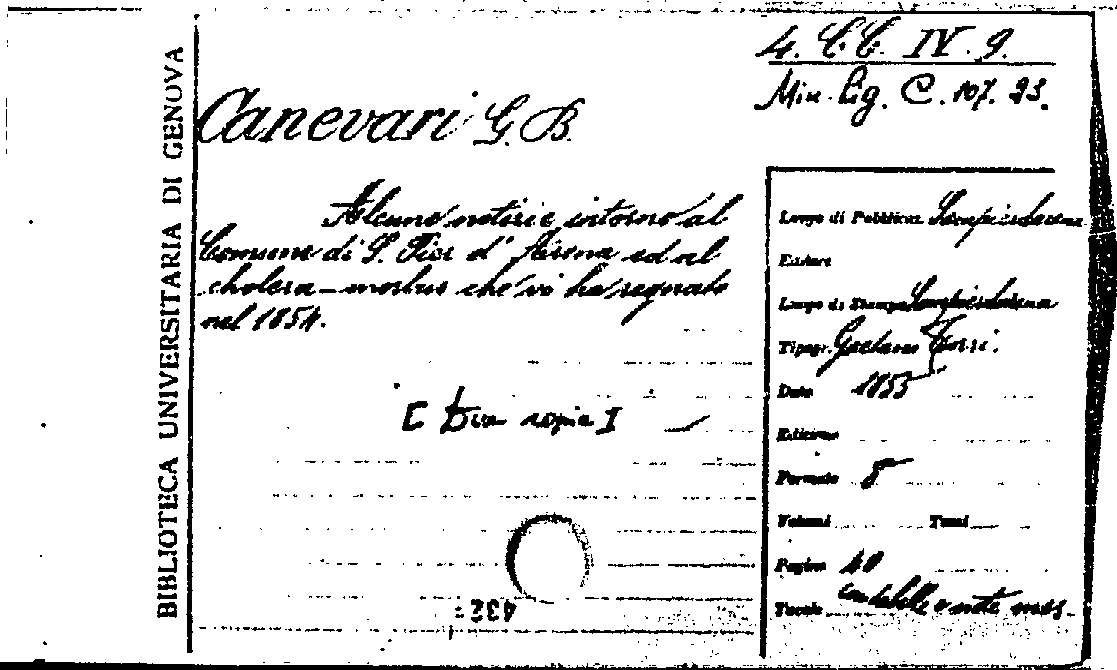 BIBLIOTECA UNIVERSITARIA DI GENOVA
4. C.C. IV. 9.
Min. Lig. C. 107. 23.
Canevari G. B.
Alcune notizie intorno al
Comune di S. Pier d'Arena ed al
cholera-morbus che vi ha regnato
nel 1854.
[ copia ]
Luogo di Pubblicaz. Sampierdarena
Editore
Luogo di Stampa Sampierdarena
Tipogr. Gaetano
Data 1855
Edizione
Formato 8°
Volumi Tomi
Pagine 40
Tavole con tabelle e note mss.